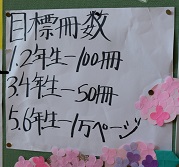 目標冊数
1.2年生ー100冊
3.4年生ー50冊
5.6年生ー1万ページ